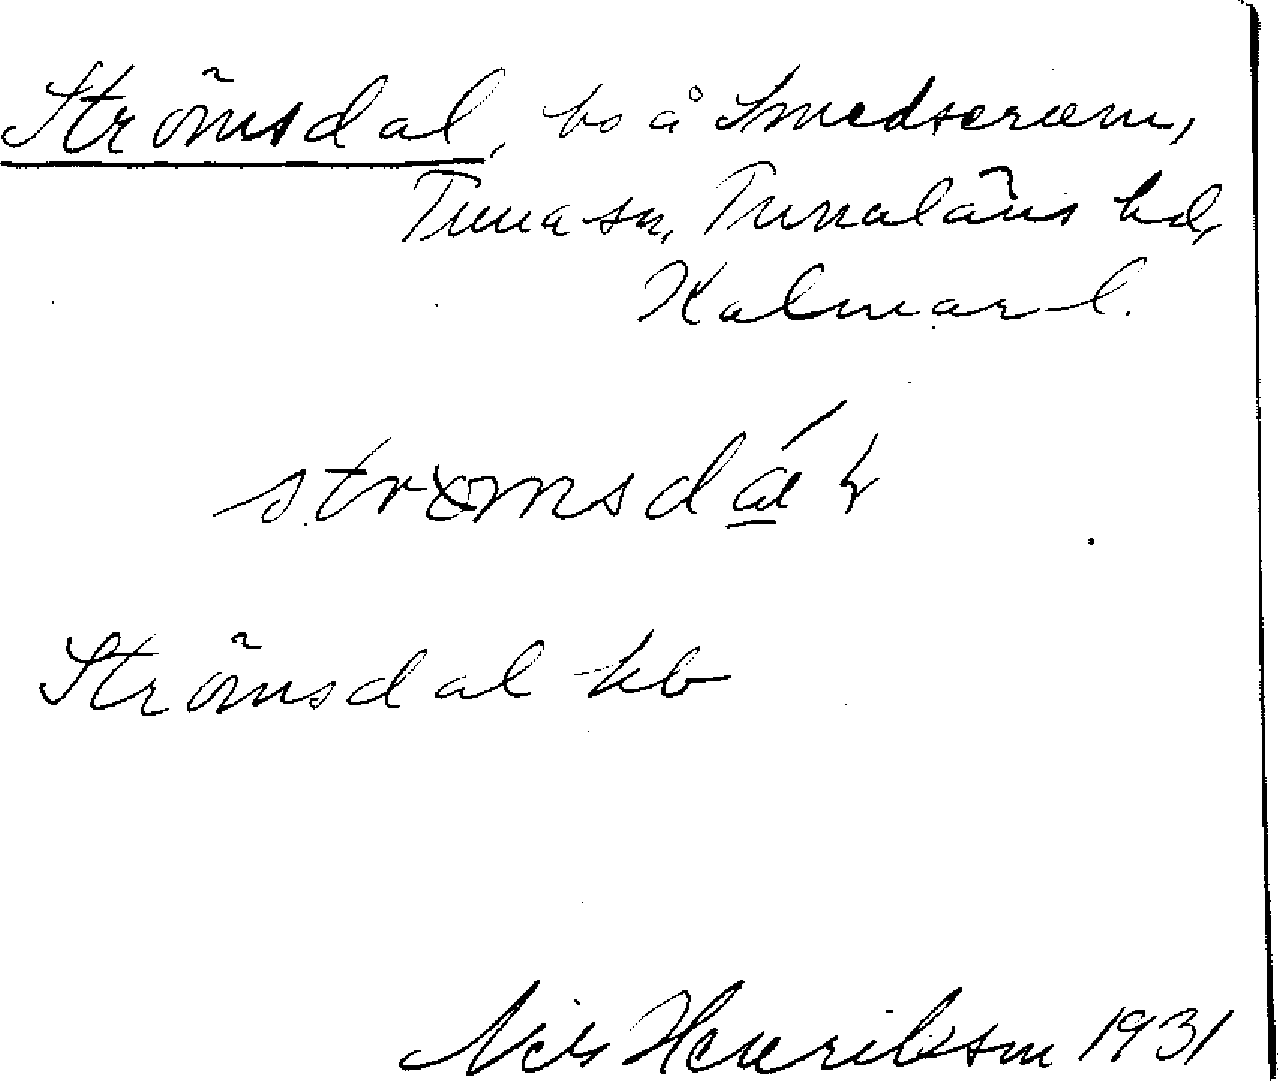 Strömsdal, bs å Smedserum,
Tuna sn, Tunaläns hd,
Kalmar l.
Strömsdal kb
Nils Henriksson 1931